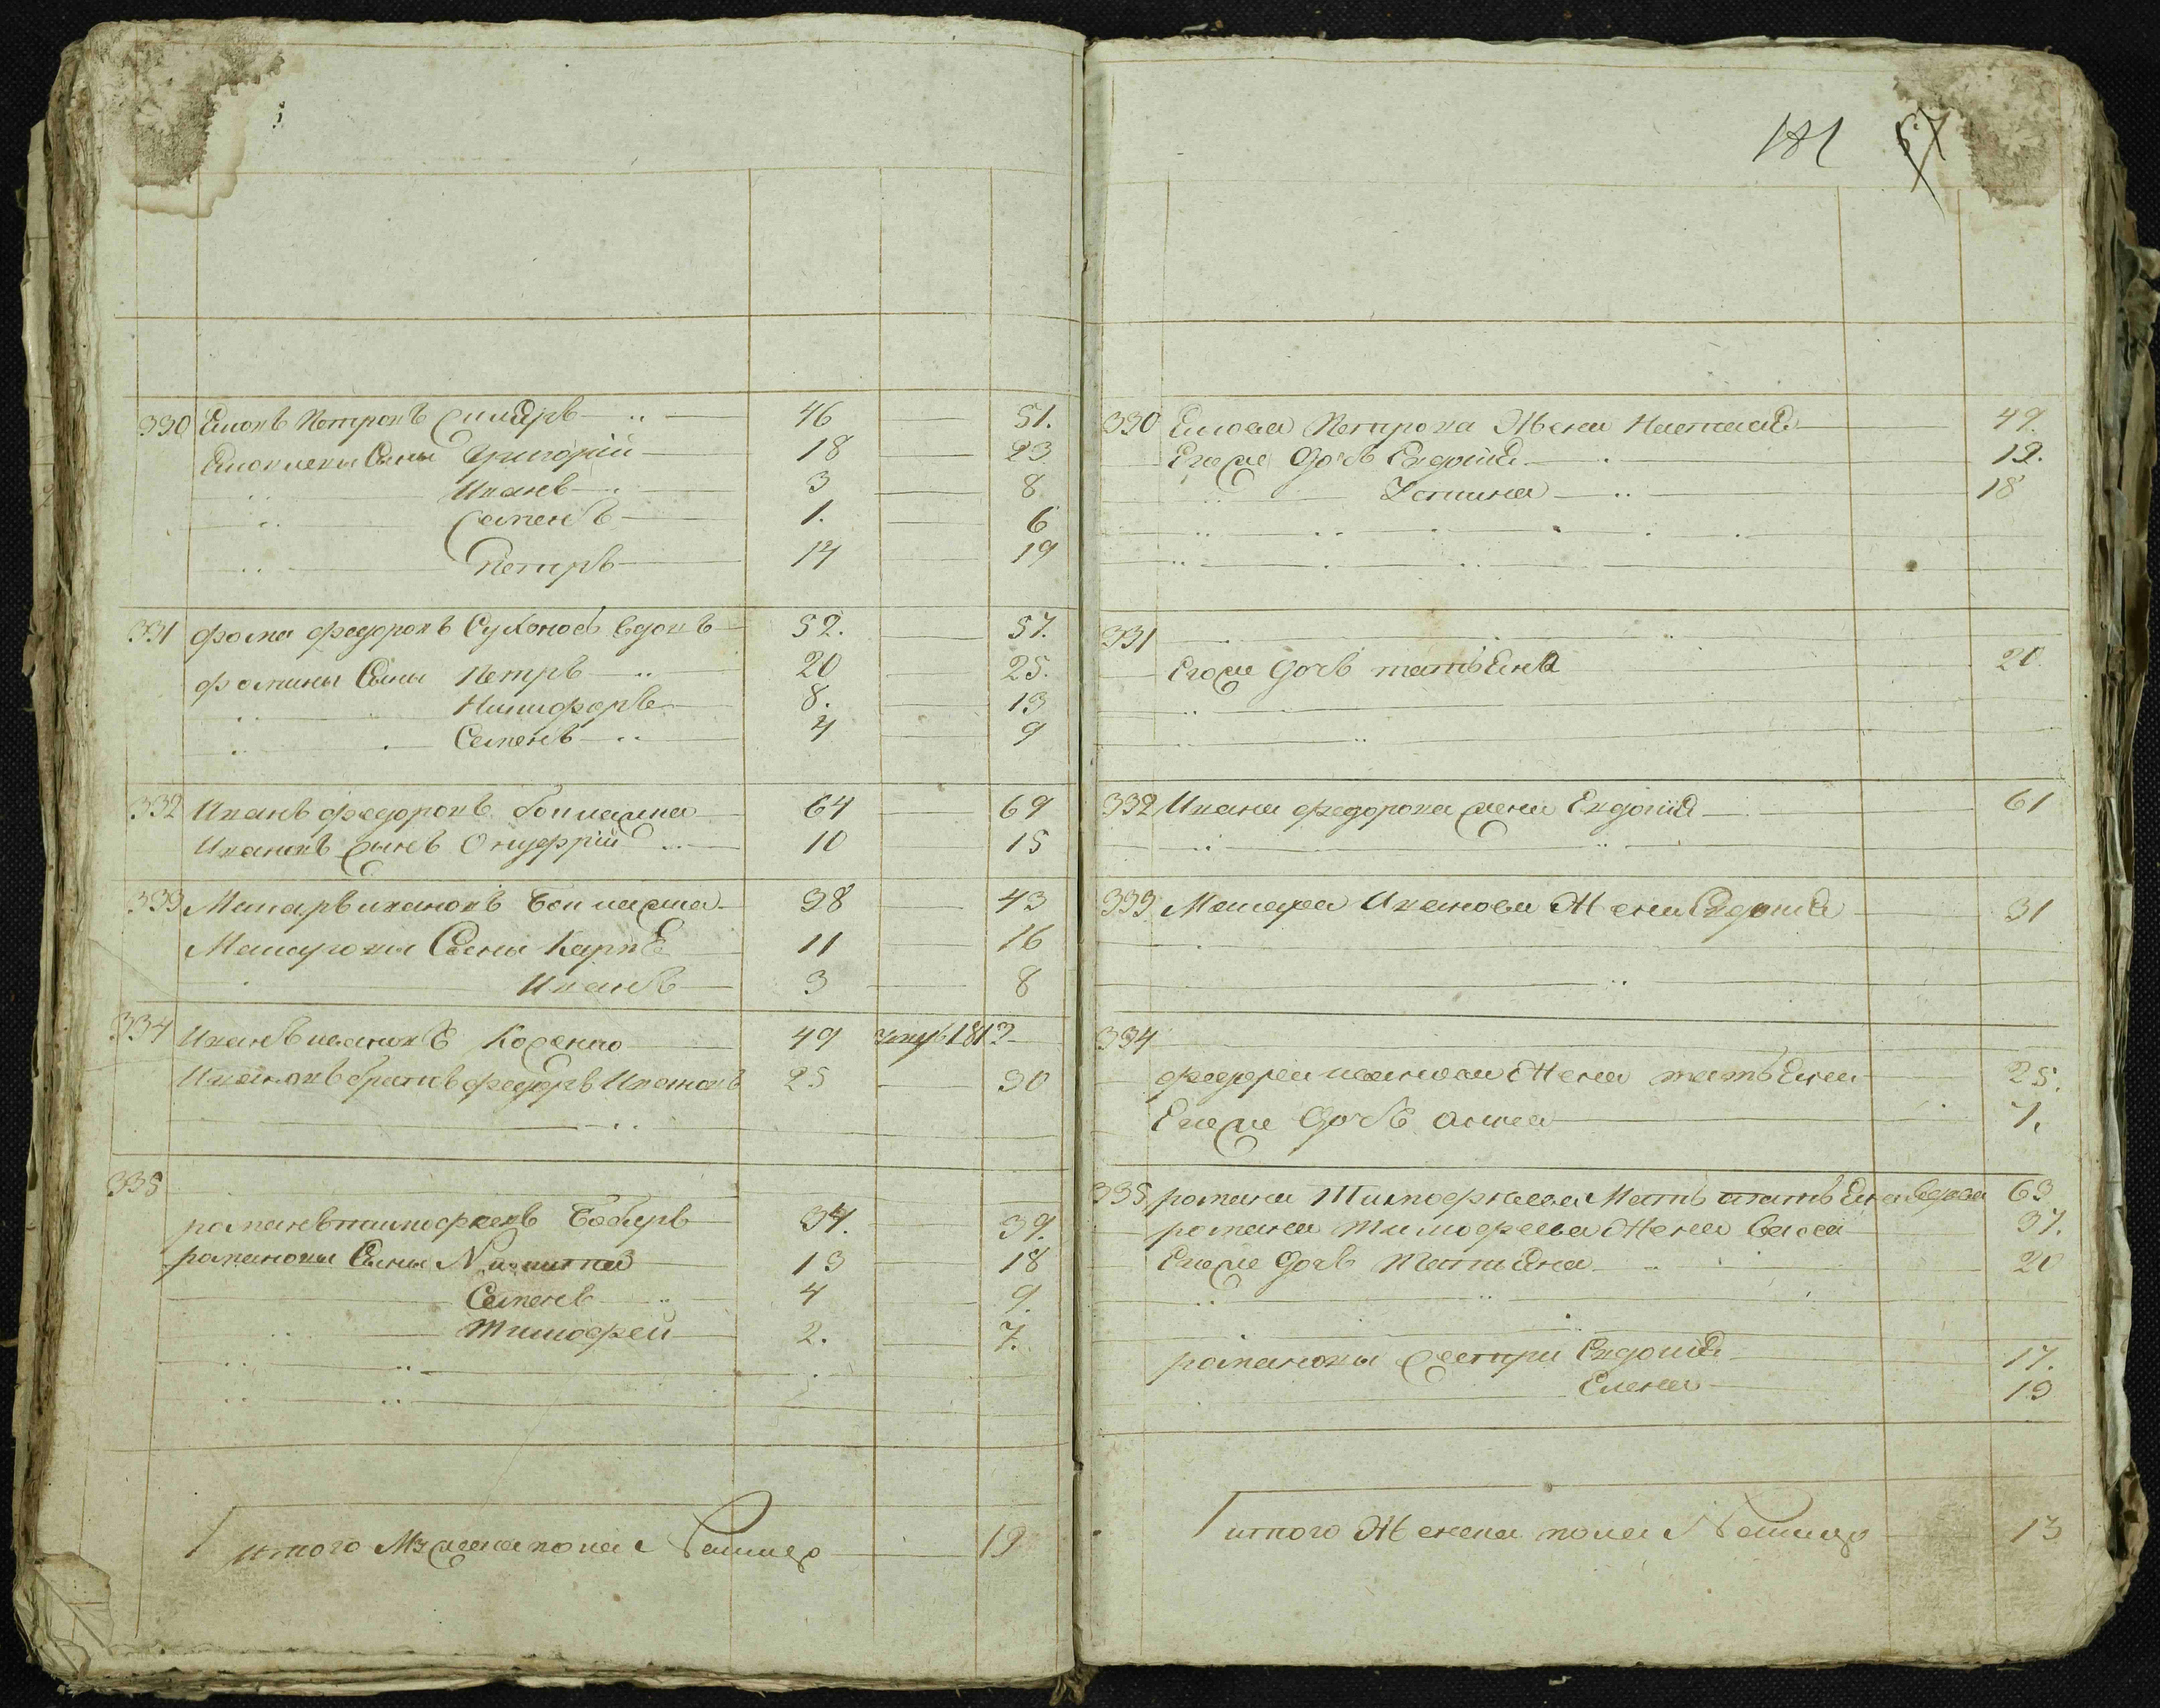 330 Емовъ Петровъ 46 51.
Сыны Григорій 18 23
Иванъ 3 8
Семенъ 1. 6
Петръ 14 19
331 Фома Федоровъ Сухоносъ вдовъ 52. 57.
Фомины Сыны Петръ 20 25.
Никифоръ 8. 13
Семенъ 4 9
332 Иванъ Федоровъ 64 69
Ивановъ сынъ Онуфрій 10 15
333 Макаръ Ивановъ 38 43
Макаровы Сыны Карпъ 11 16
Иванъ 3 8
334 Иванъ Ивановъ 49 умръ 1813
Ивановъ братъ Федоръ Ивановъ 25 30
335
Романъ Тимофеевъ Бобырь 34. 39.
Романовы Сыны Никита 13 18
Семенъ 4 9.
Тимофей 2. 7.
итого Мужеска пола Налицо 19
181 57
330 Петрова Жена Настасія 49.
Егоже Дочь Евдокія 19.
Устина 18
331
Егоже Дочь татьяна 20
332 Ивана Федорова жена Евдокія 61
333 Макара Иванова Жена Евдокія 31
334
Федора иванова Жена татьяна 25.
Егоже Дочь анна 7.
335 Романа Тимофеева Мать татьяна вдова 63
Романа Тимофеева Жена Васса 37.
Егоже Дочь Татьяна 20
Романовы сестри Евдокія 17.
Елена 19
итого Женска пола Налицо 13